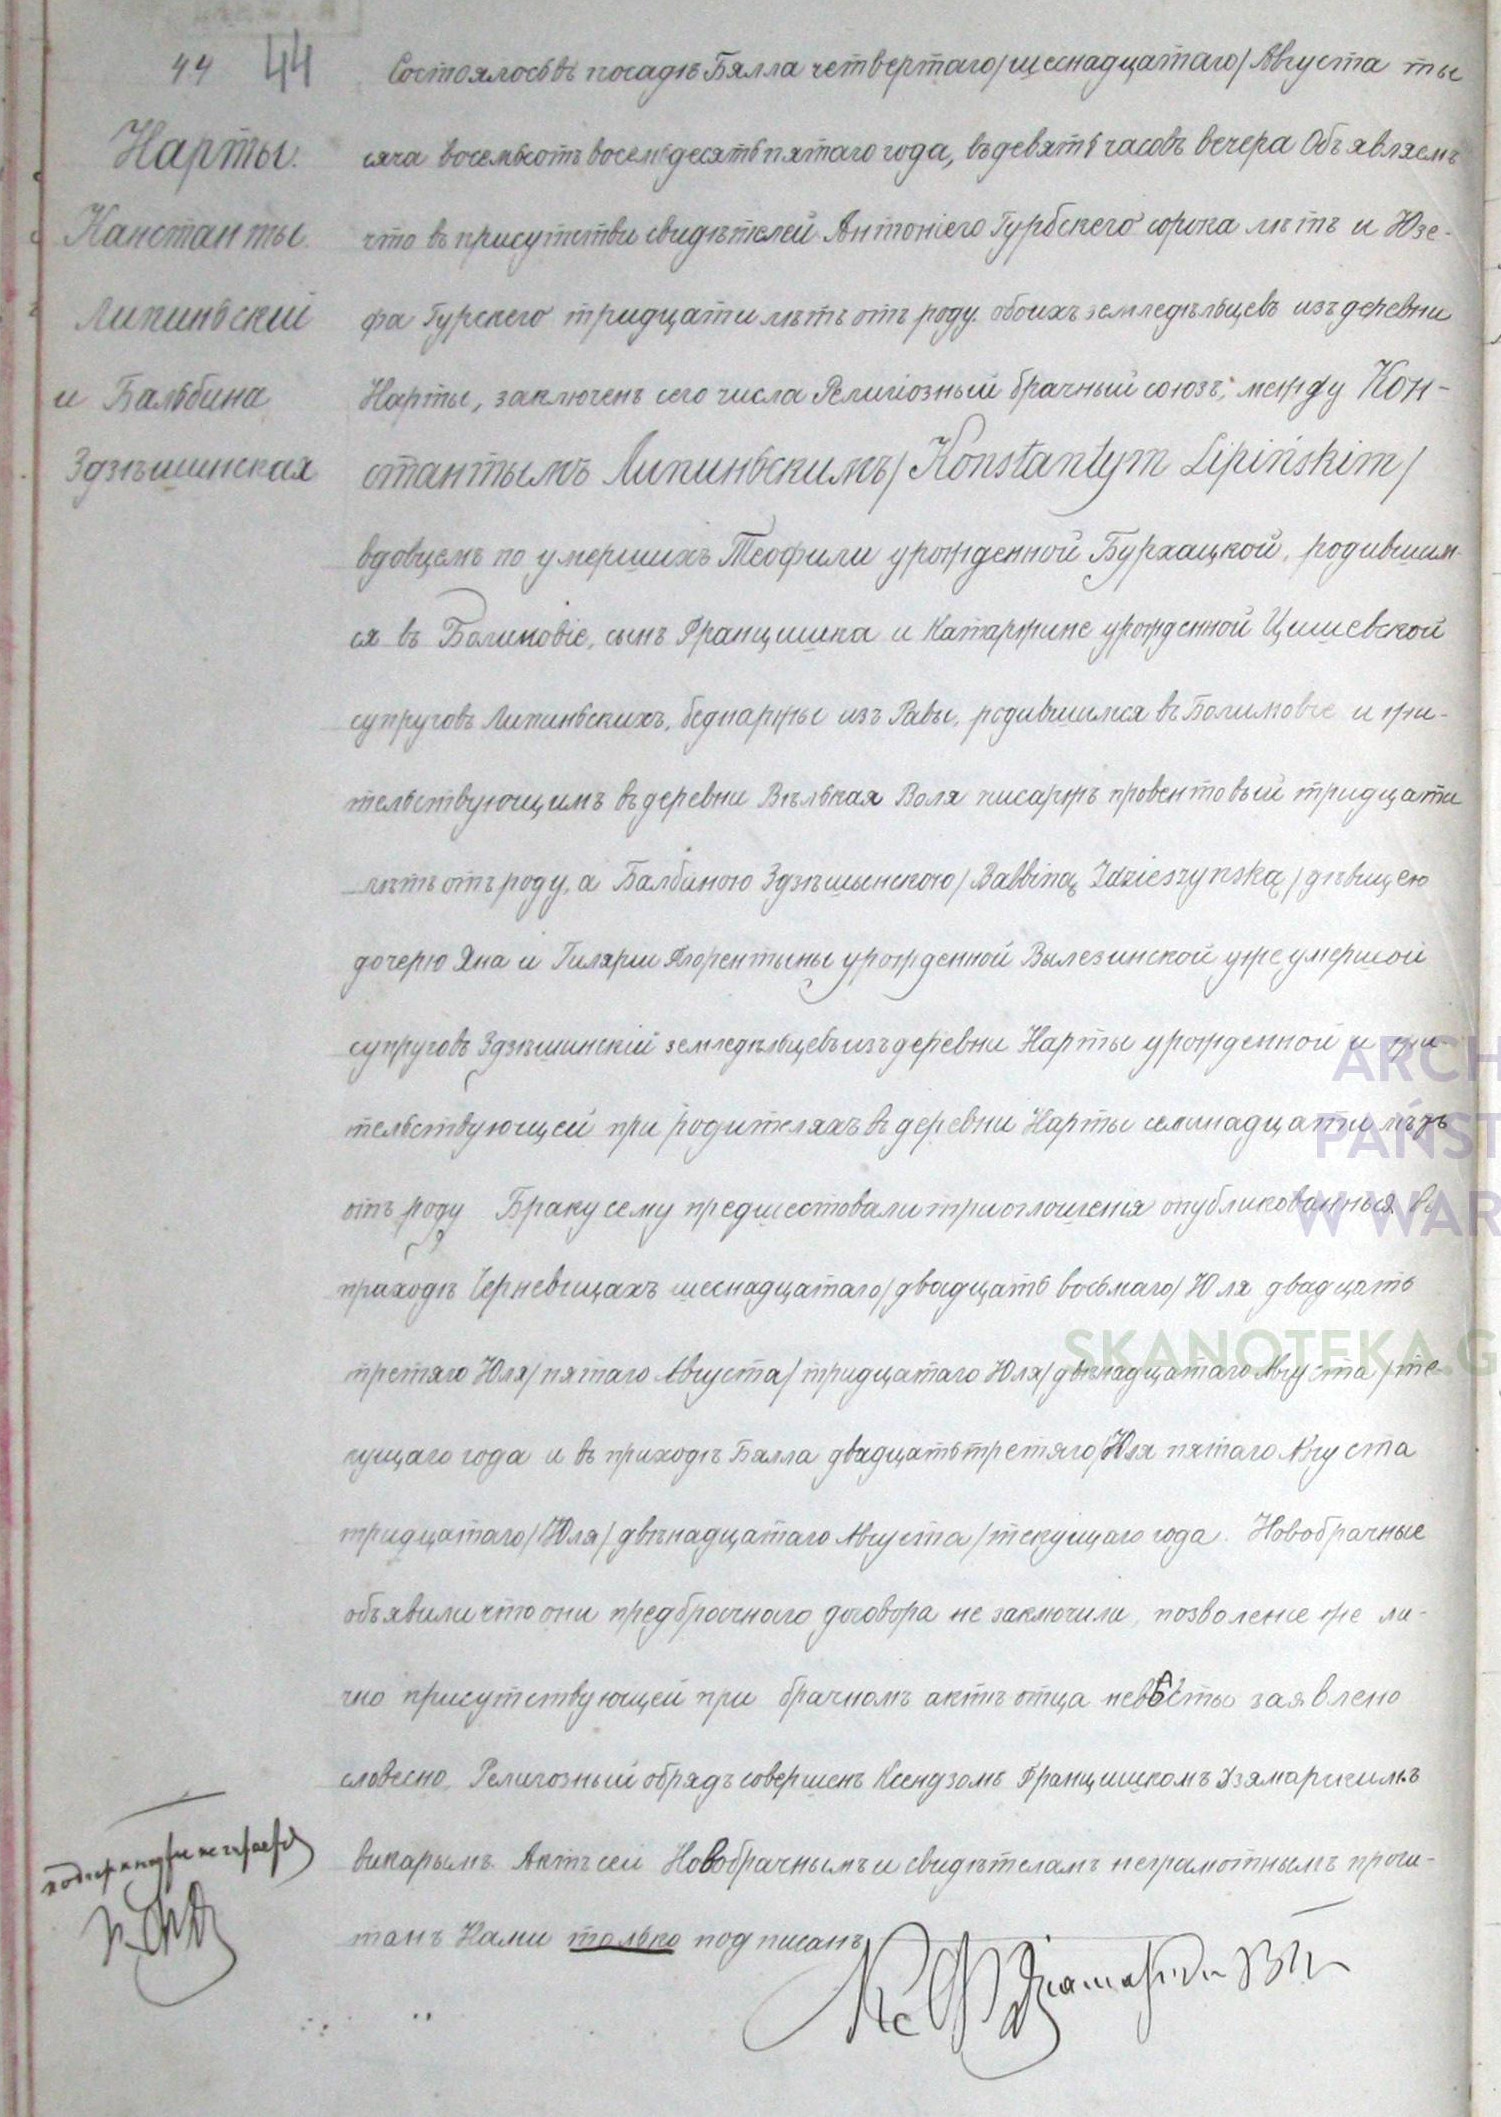 44 44
Нарты.
Канстанты
Липиньскій
и Бальбина
Здзѣшинская
Состоялось въ посадѣ Бялла четвертаго/шеснадцатаго/Августа ты
сяча восемьсотъ восемьдесятъ пятаго года, въ девять часовъ вечера Объявляемъ
что въ присутстви свидѣтелей Антонiего Гурбскего сорока лѣтъ и Юзе-
фа Гурскего тридцати лѣтъ отъ роду обоихъ земледѣльцевъ изъ деревни
Нарты, заключенъ сего числа Религiозный брачный союзъ, между Кон-
стантымъ Липиньскимъ/Konstantym Lipińskim/
вдовцемъ по умершихъ Теофили урожденной Бурхацкой, родившим-
ся въ Болимовiе, сынъ Францишка и Катаржине урожденной Цишевской
супруговъ Липиньскихъ, беднаржы изъ Равы, родившимся въ Болимовiе и жи-
тельствующимъ въ деревни Вѣлькая Воля писаржъ провентовый тридцати
лѣтъ отъ роду, а Балбиною Здзѣшынскою/Balbiną Zdzieszynską/дѣвицею
дочерю Яна и Гилярiи Флорентыны урожденной Вылезинской уже умершой
супруговъ Здзѣшинскiй земледѣльцевъ изъ деревни Нарты урожденной и жи-
тельствующей при родителяхъ въ деревни Нарты семинадцати лѣтъ
отъ роду Браку сему предшествовали три оглошенiя опубликованныя въ
приходѣ Черневицахъ шеснадцатаго/двадцать восьмаго/Юля двадцать
третяго Юля/пятаго Августа/тридцатаго Юля/двѣнадцатаго Августа/те-
кущаго года и въ приходѣ Бялла двадцать третяго/Юля пятаго Августа
тридцатаго/Юля/двѣнадцатаго Августа/текущаго года. Новобрачные
объявили что они предбрачнаго договора не заключили, позволенiе же ли-
чно присутствующей при брачномъ актѣ отца невѣсты заявлено
словесно. Религозный обрядъ совершенъ Ксендзомъ Францишкомъ Дзямарскимъ
викарымъ. Актъ сей Новобрачнымъ и свидѣтелямъ неграмотнымъ прочи-
танъ Нами только подписанъ
Кс Ф
ARCH
PAŃST
W WAR
SKANOTEKA.G